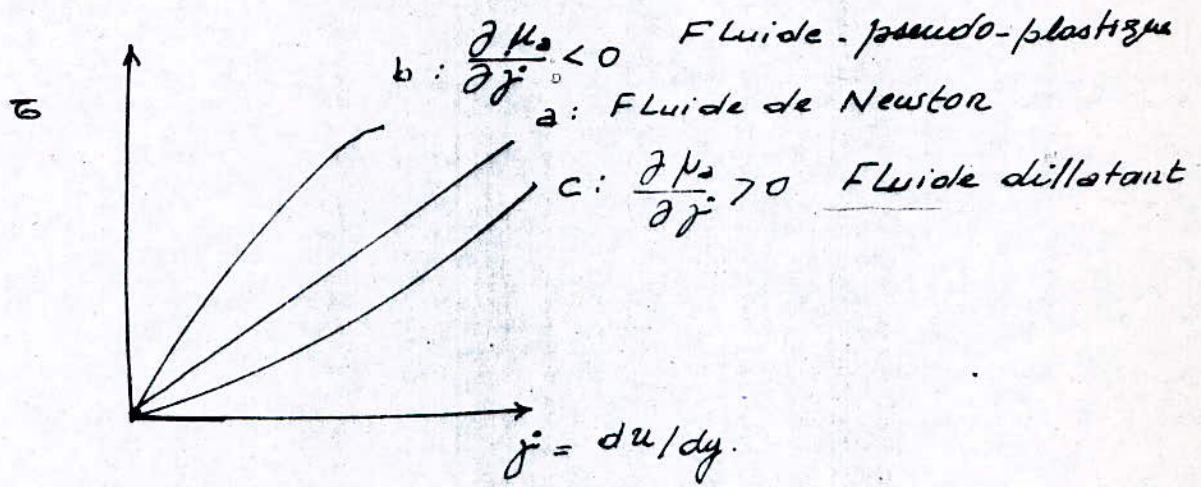 b : ∂μa/∂γ̇ < 0 Fluide - pseudo-plastique
σ
a : Fluide de Newton
c : ∂μa/∂γ̇ > 0 Fluide dillatant
γ̇ = du/dy.